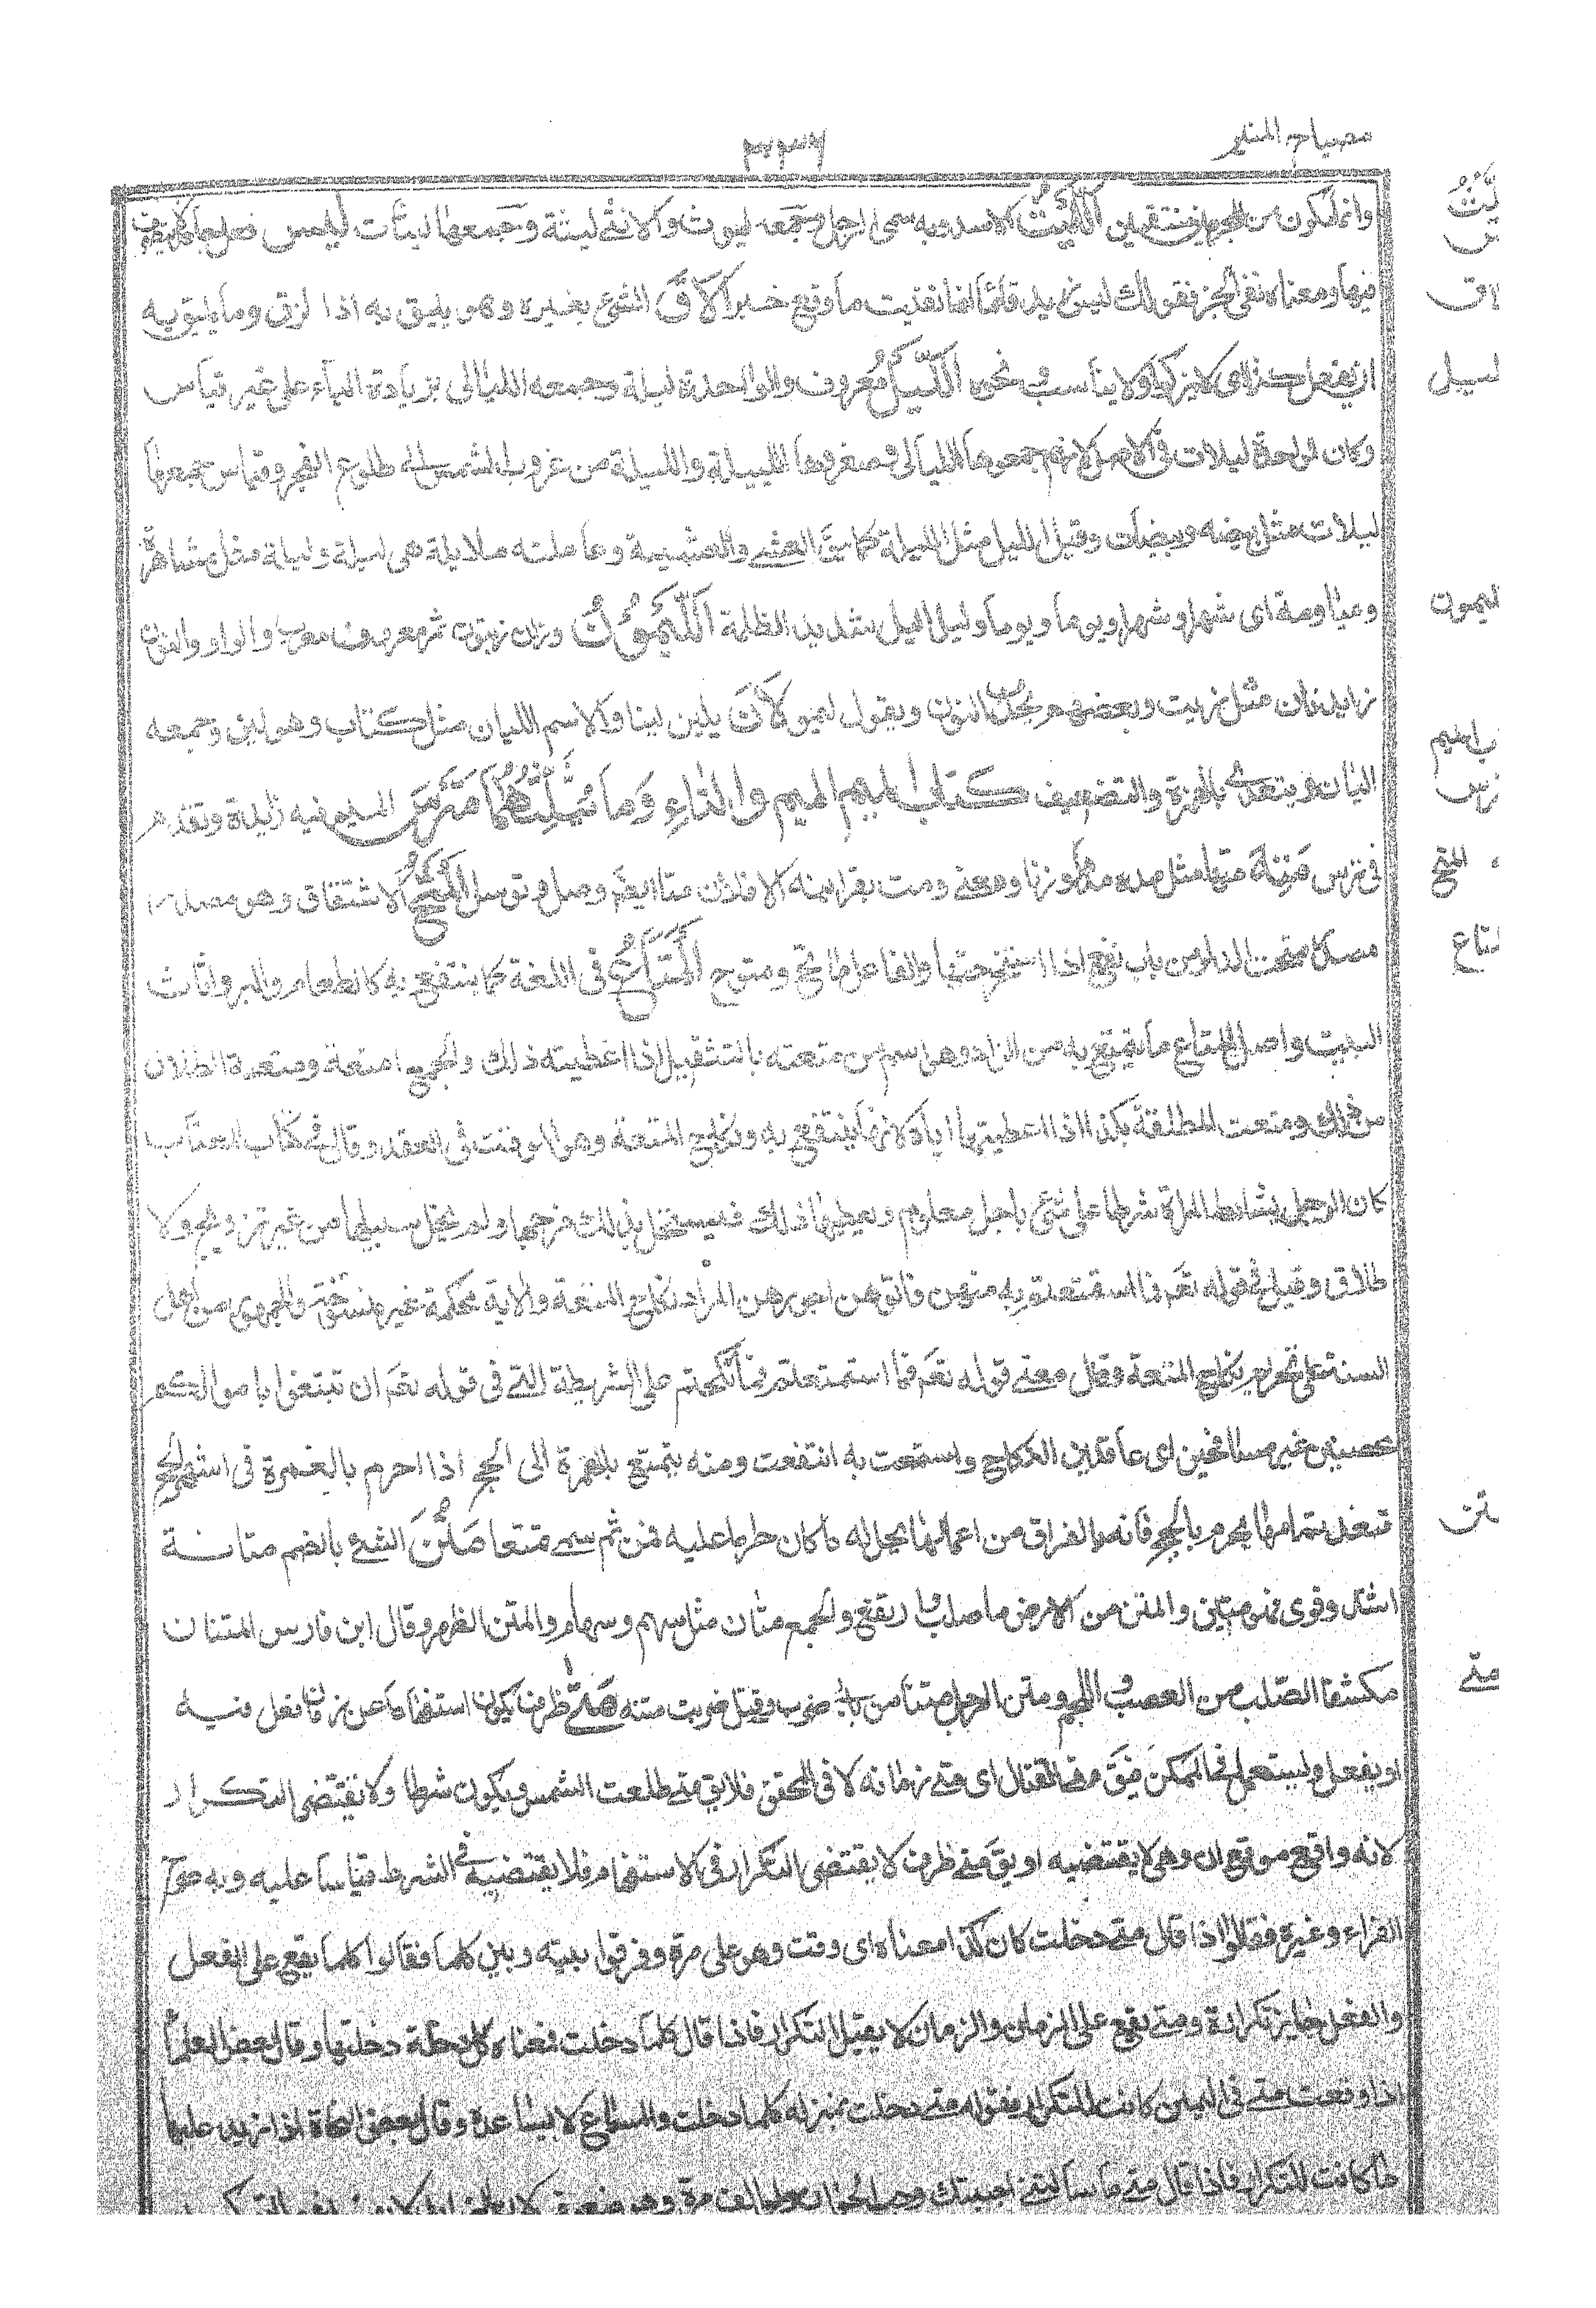 مصباح المنير
وانما تكون من الجهاز منتقلين اَللَّيْثُ الاسد وبه سمى الرجل وجمعه ليوث والانثى ليثة وجمعها ليثات ليس فعل جامد
فيها ومعناه نفى الخبر فقولك ليس زيد قائما انما نفيت ما وقع خبرا لَاقَ الشئ بغيره وهو يليق به اذا لزق وما يليق به
ان يفعل كذا اى لا يزكو ولا يناسب ونحوه اَللَّيْلُ معروف والواحدة ليلة وجمعه الليالى بزيادة الياء على غير قياس
وكان الواحدة ليلات فى الاصل لانهم جمعوها الليالى وصغروها اللييلة والليلة من غروب الشمس الى طلوع الفجر وقياس جمعها
ليلات مثل بيضه وبيضات وقيل الليل مثل الليلة كما يقال العشى والعشية وعاملته ملايلة اى ليلة وليلة مثل مشاهرة
ومياومة اى شهرا وشهرا ويوما ويوما وليل اليل شديد الظلمة اَللَّيْمُوْنُ وزان زيتون ثمر معروف معرب والواو والنون
زايدتان مثل زيت وبعضهم يحذف النون ويقول ليمو لَانَ يلين لينا والاسم الليان مثل كتاب وهو لين وجمعه
اليان ويتعدى بالهمزة والتضعيف كتاب الميم الميم والتاء وما يثلثهما مَتَرَسْ الميم فيه زايدة وتقدم
فى ترس مَتَتُّهُ متها مثل مده مدا وزنا ومعنى ومت بقرابته الى فلان متا ايضا وصل وتوسل اَلْمَتْحُ الاشتقاق وهو مصدر
متحت الدلو من باب نفع اذا استخرجتها والفاعل ماتح ومتوح اَلْمَتَاعُ فى اللغة كل ما ينتفع به كالطعام والبر واثاث
البيت واصل المتاع ما يتمتع به من الزاد وهو اسم من متعته بالتثقيل اذا اعطيته ذلك والجمع امتعة ومتعة الطلاق
من ذلك ومتعت المطلقة بكذا اذا اعطيتها اياه لانها ينتفع به ونكاح المتعة وهو الموقت فى العقد وقال فى كتاب العباب
كان الرجل يشارط المراة شرطا على شئ باجل معلوم ويعطيها ذلك فيستحل بذلك فرجها ثم يخلى سبيلها من غير تزويج ولا
طلاق وقيل فى قوله تعم فما استمتعتم به منهن فاتوهن اجورهن المراد نكاح المتعة والاية محكمة غير منسوخة والجمهور من اهل
السنة على تحريم نكاح المتعة وقال معنى قوله تعم فما استمتعتم فما نكحتم على الشريطة التى فى قوله تعم ان تبتغوا باموالكم
محصنين غير مسافحين اى عاقدين النكاح واستمتعت به انتفعت ومنه يتمتع بالعمرة الى الحج اذا احرم بالعمرة فى اشهر الحج
فبعد تمامها يحرم بالحج فانه بالفراق من اعمالها يحل له ما كان حرم عليه فمن ثم سمى متمتعا مَتُنَ الشئ بالضم متانة
اشتد وقوى فهو متين والمتن من الارض ما صلب وارتفع والجمع متان مثل سهم وسهام والمتن الظهر وقال ابن فارس المتنان
مكتنفا الصلب من العصب واللحم ومتن الرجل متنا من باب ضرب وقتل ضربت متنه مَتٰى ظرف يكون استفهاما عن زمان فعل فيه
او يفعل ويستعمل فى الممكن فيق متى القتال اى متى زمانه لا فى المحقق فلا يق متى طلعت الشمس ويكون شرطا ولا تقتضى التكرار
لانه واقع موقع ان وهى لا يقتضيه او يق متى ظرف لا يقتضى التكرار فى الاستفهام فلا يقتضيه فى الشرط قياسا عليه وبه صرح
الفراء وغيره فقالوا اذا قال متى دخلت كان كذا معناه اى وقت وهو على مرة وفرقوا بينه وبين كلما فقالوا كلما يقع على الفعل
والفعل جايز تكراره ومتى يقع على الزمان والزمان لا يقبل التكرار فاذا قال كلما دخلت فمعناه كل دخلة دخلتها وقال بعض العلماء
اذا وقعت متى فى اليمين كانت للتكرار فقوله متى دخلت بمنزله كلما دخلت والسماع لا يساعده وقال بعض النحاة اذا زيد عليها
ما كانت للتكرار فاذا قال متى ما سألتنى اجبتك وجب الجواب ولو الف مرة وهو ضعيف
لَيْثُ
لاق
ليل
ليمون
متح
متاع
متن
متى